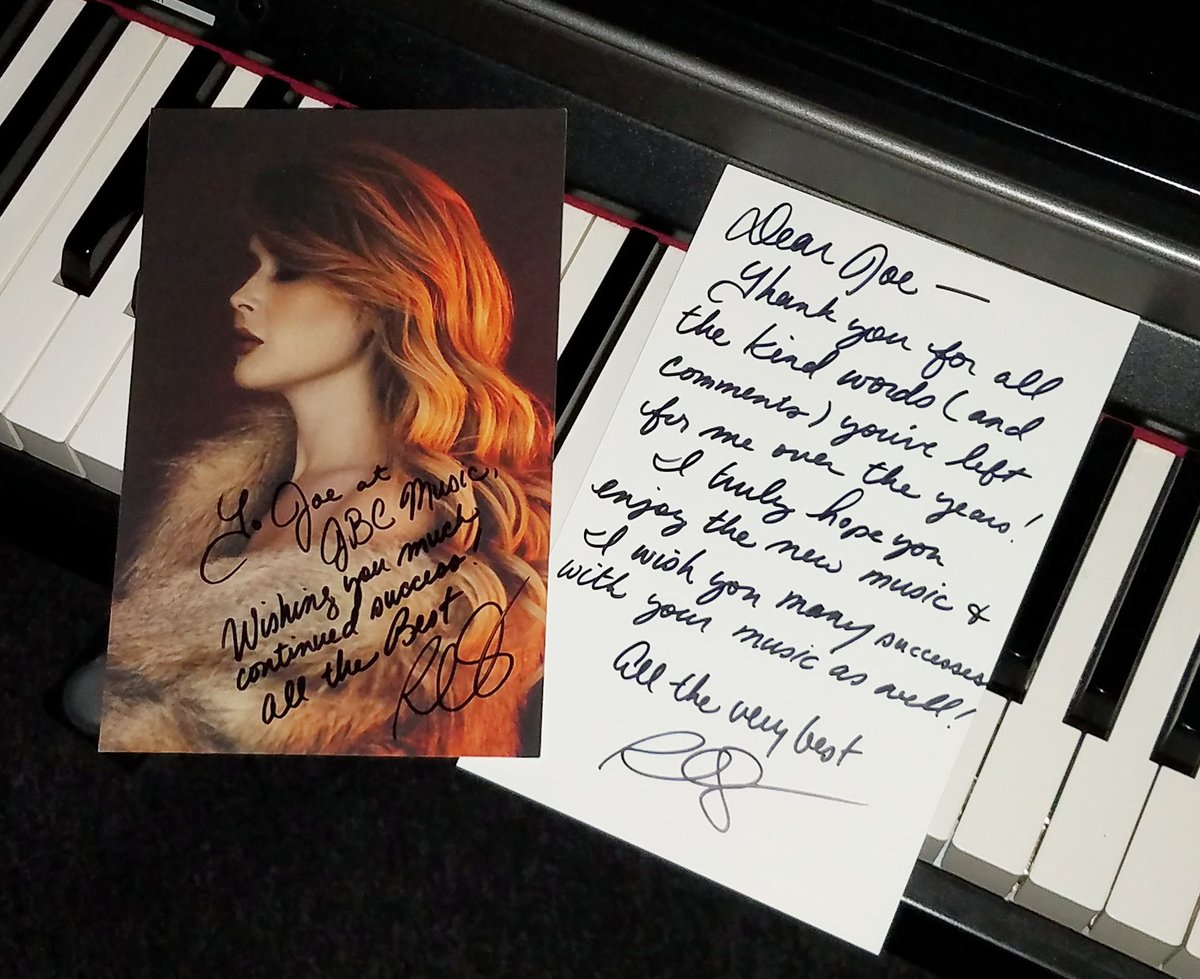 To Joe at
JBC Music,
Wishing you much
continued success!
all the Best
Dear Joe —
Thank you for all
the kind words (and
comments) you've left
for me over the years!
I truly hope you
enjoy the new music &
I wish you many successes
with your music as well!
All the very best